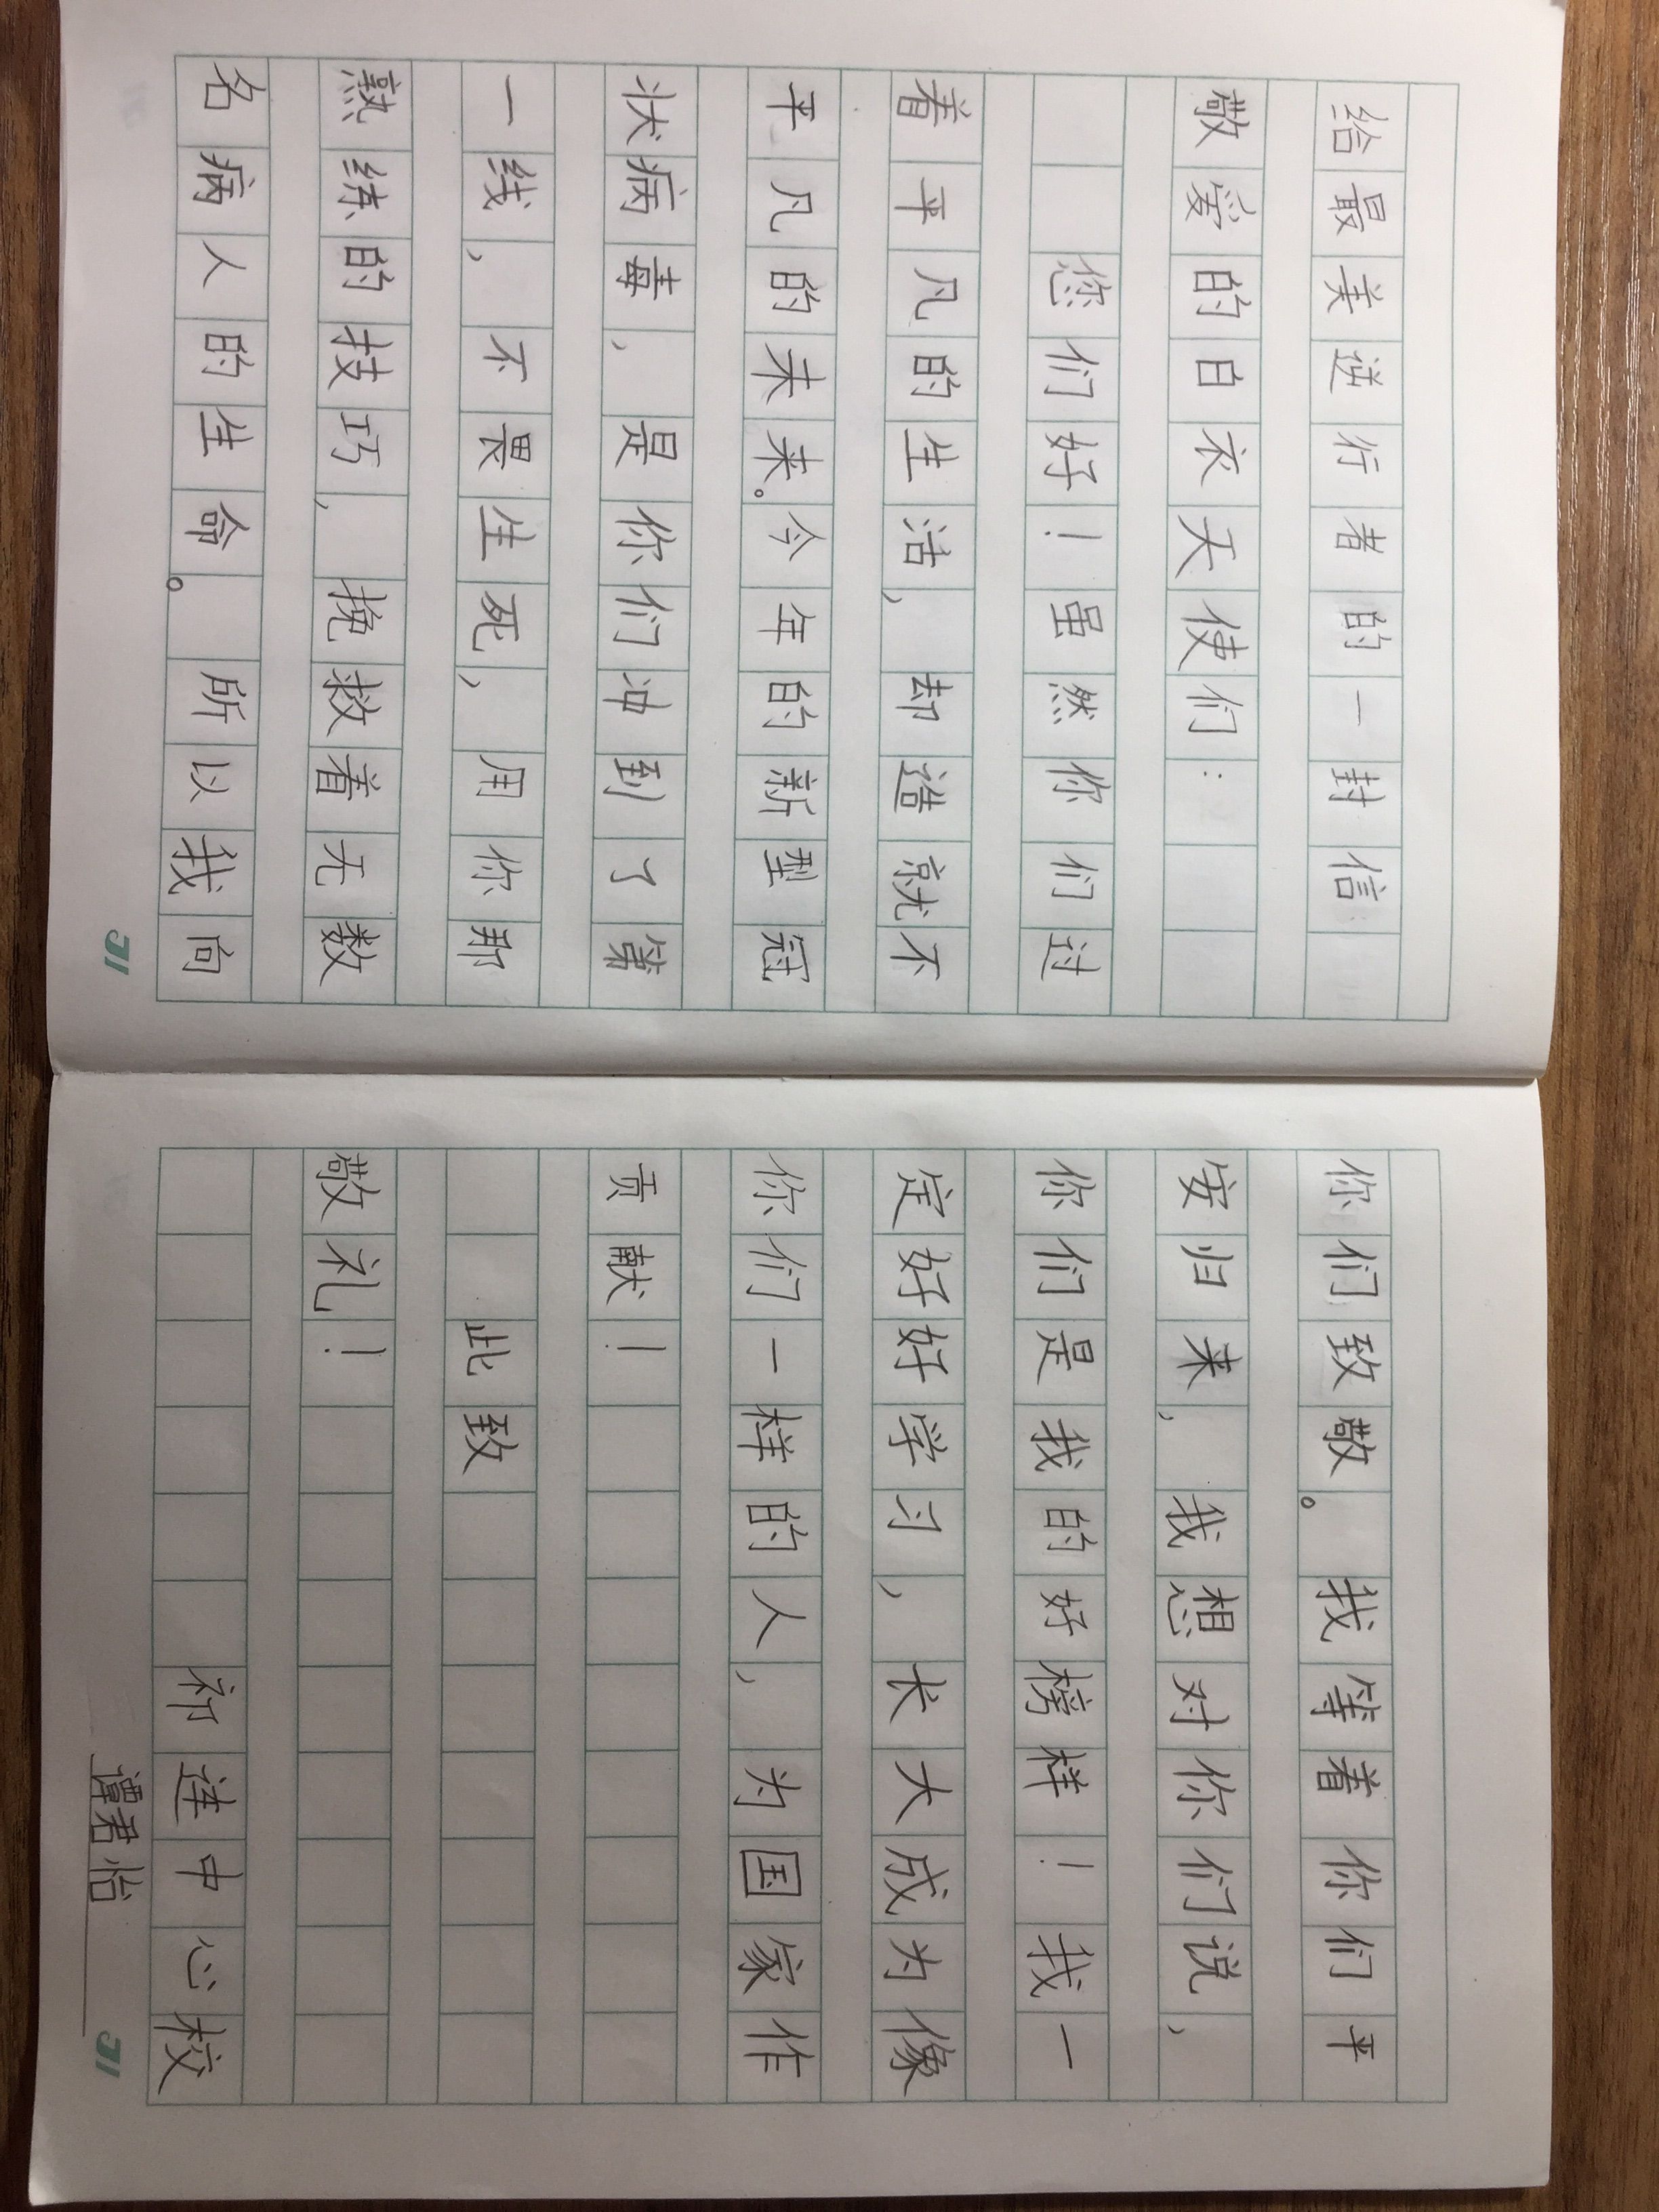 给最美逆行者的一封信
敬爱的白衣天使们：
您们好！虽然你们过
着平凡的生活，却造就不
平凡的未来。今年的新型冠
状病毒，是你们冲到了第
一线，不畏生死，用你那
熟练的技巧，挽救着无数
名病人的生命。所以我向
你们致敬。我等着你们平
安归来，我想对你们说，
你们是我的好榜样！我一
定好好学习，长大成为像
你们一样的人，为国家作
贡献！
此致
敬礼！
祁连中心校
谭君怡